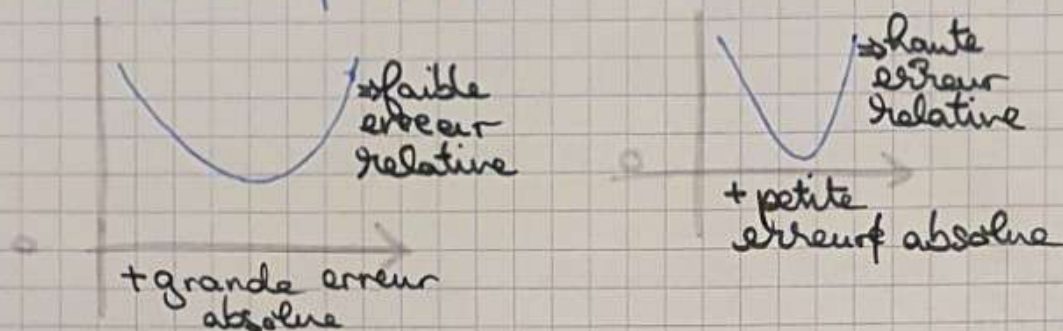 ⇒faible
erreur
relative
+ grande erreur
absolue
⇒haute
erreur
relative
+ petite
erreur absolue
0
0